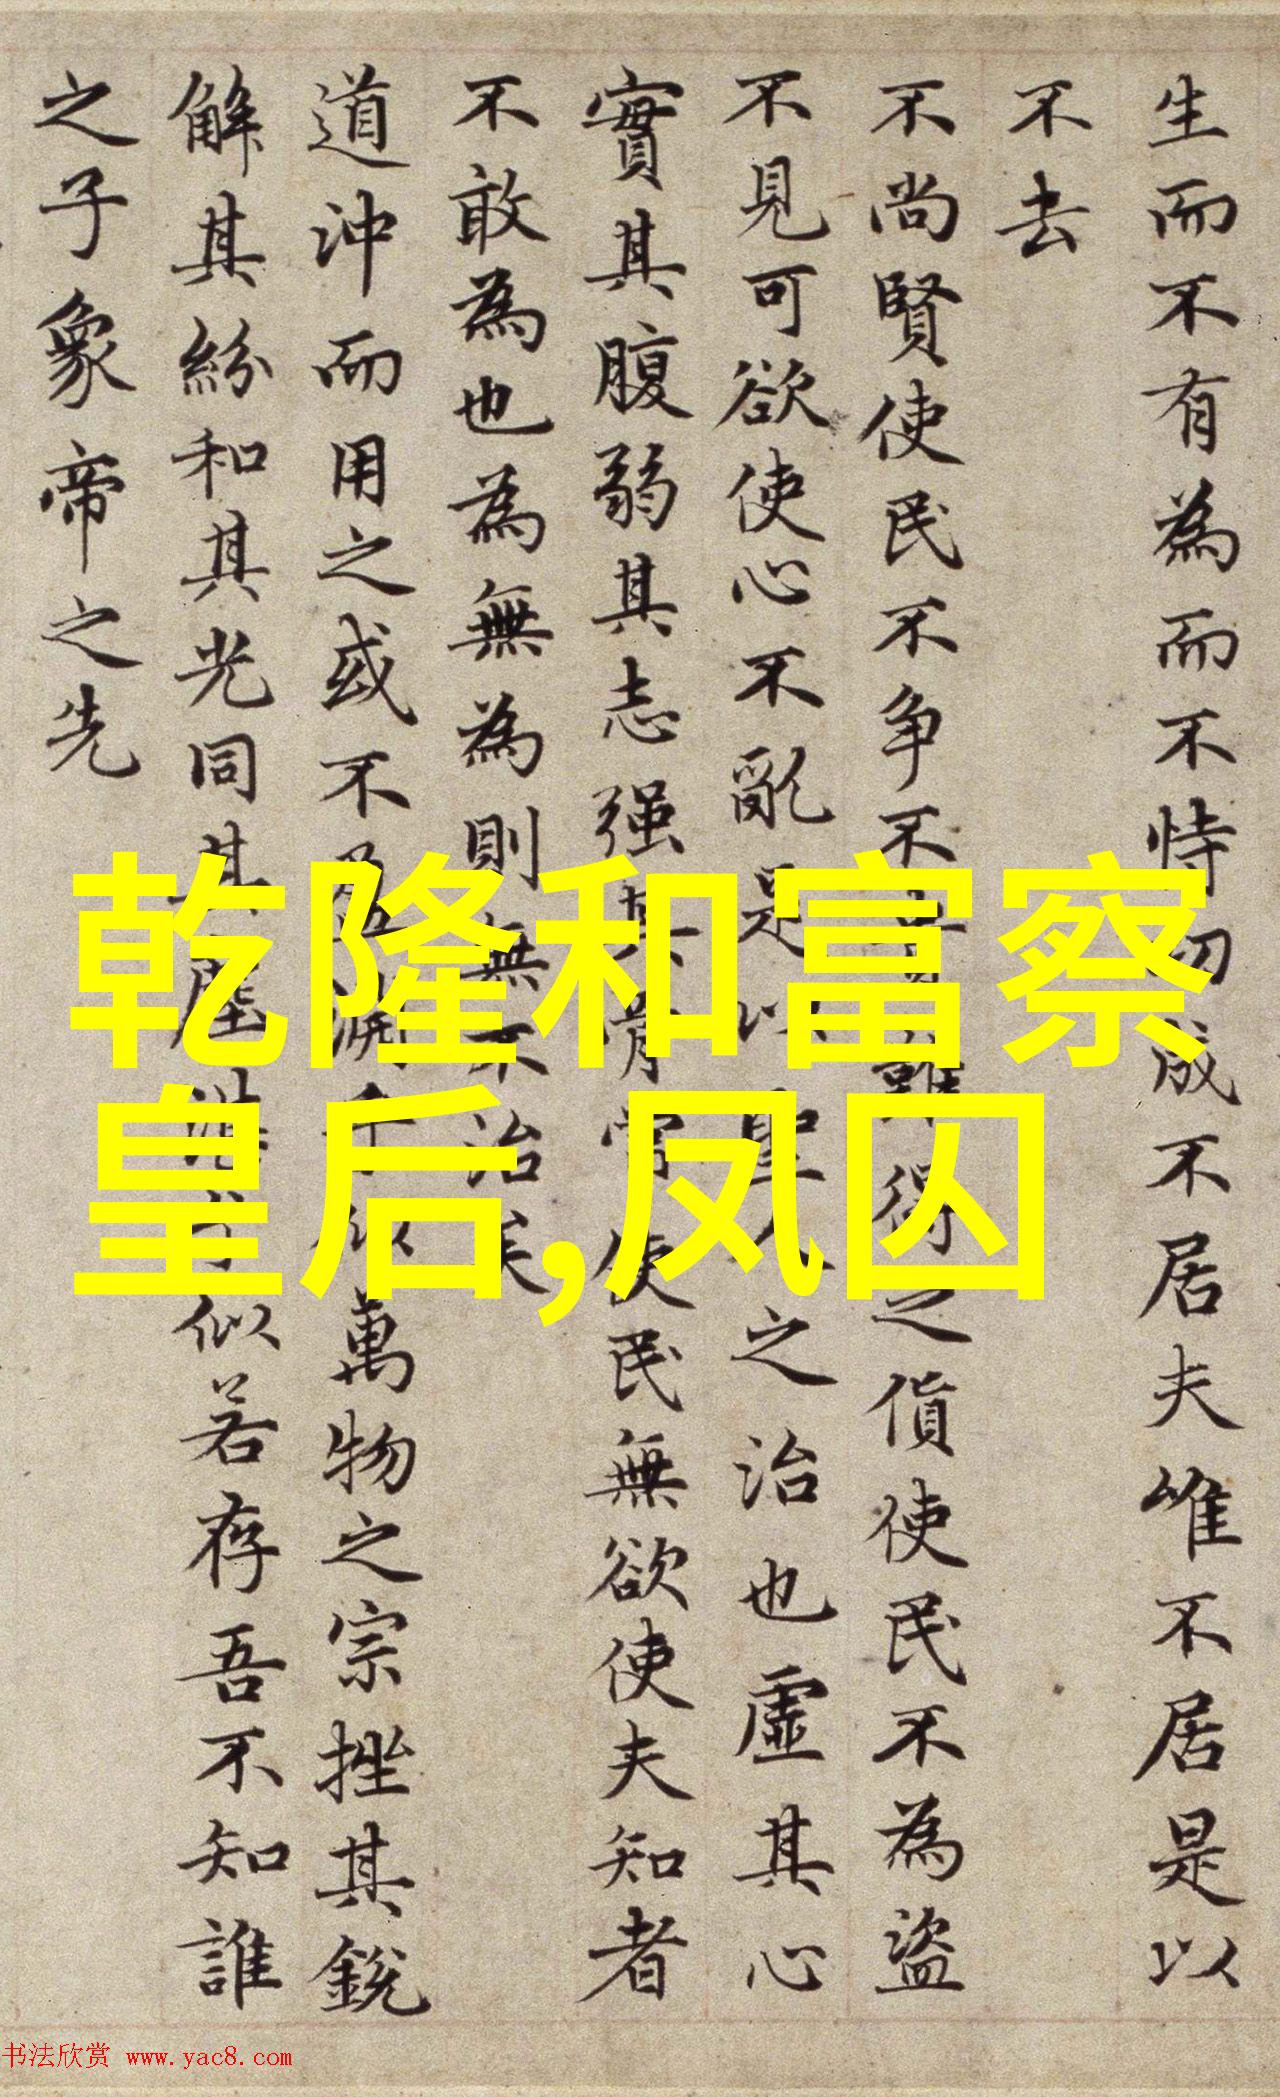 生而不有為而不恃功成不居夫唯不居是以
不去
不尚賢使民不争不貴難得之貨使民不為盜
不見可欲使心不亂是以聖人之治也虛其心
實其腹弱其志强其骨常使民無欲使夫知者
不敢為也為無為則無不治矣
道沖而用之或不盈淵乎似萬物之宗挫其銳
解其紛和其光同其塵湛似若存吾不知誰
之子象帝之先
乾隆和富察
皇后,凤囚
书法欣赏 www.yac8.com